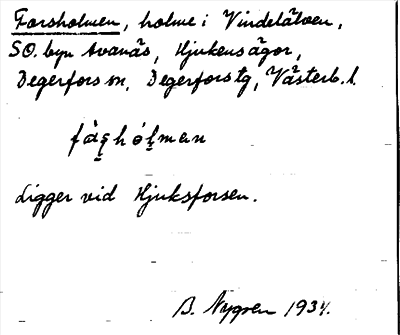 Forsholmen, holme i Vindelälven,
SO. byn Avanäs, Hjukens ägor,
Degerfors sn, Degerfors tg, Västerb. l.
Ligger vid Hjuksforsen.
B. Nygren 1934.